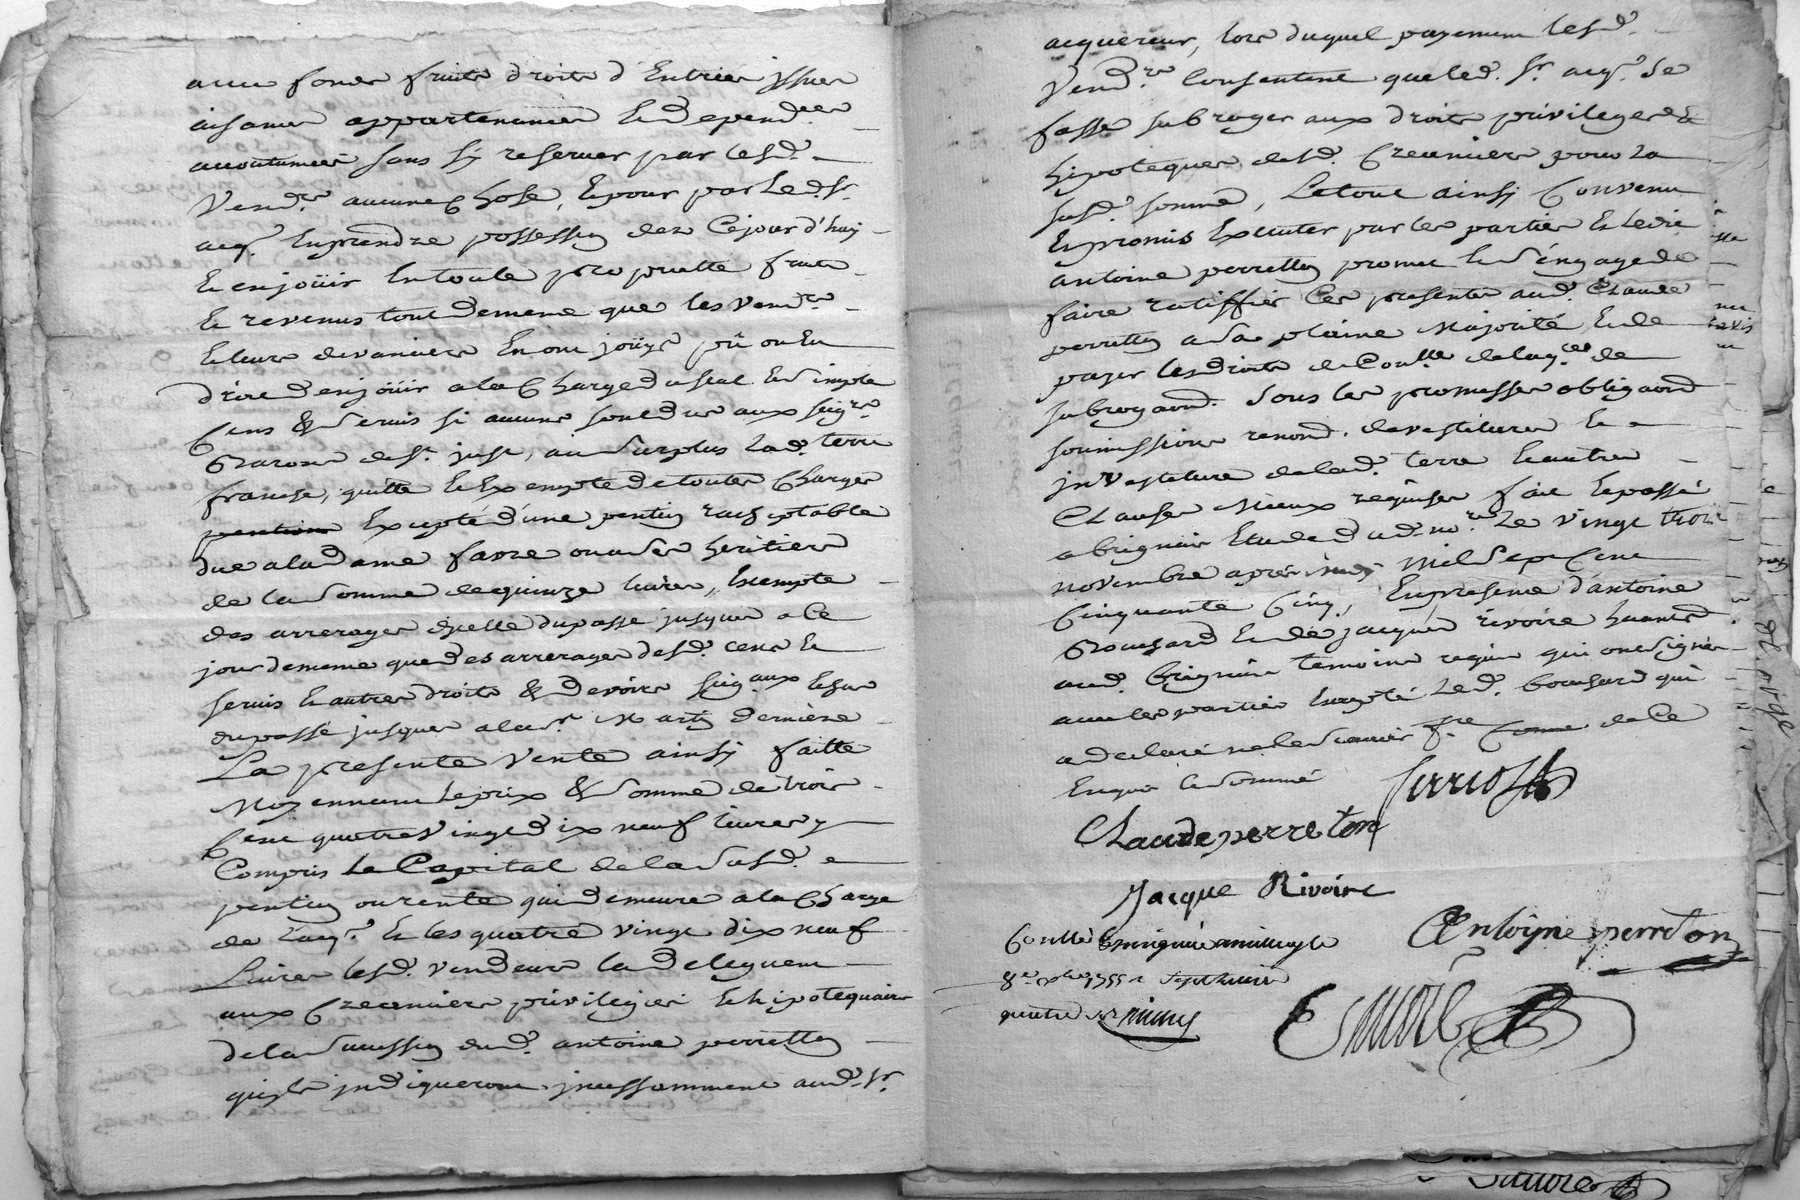 avec fonds fruits droits d'Entrées jssues
aisances appartenances Et dependces
accoutumées sans sy reserver par lesd.
Vendrs aucune chose, Et pour par Led. Sr.
acqr Enprendre possession dez Cejourd'huy
Et enjoüir Entoute proprietté fruits
Et revenus tout demême que les vendrs
Et leurs devanciers Enont joüys pû ou Eu
droit d'enjoüir ala Charge du seul Et simple
Cens & servis si aucuns sont dus aux seigrs
Barons de St. just, au surplus Lad. terre
franche, quitte Et Exempte de toutes Charges
pention Excepté d'une pention rachptable
due ala dame favre ou a ses heritiers
de la somme de quinze livres, Exempte
des arrerages d'jcelle du passé jusques a Ce
jour demême que des arrerages desd. cens Et
servis Et autres droits & devoirs seigaux Eschus
du passé jusques ala st. Martin derniere
La presente Vente ainsy faitte
Moyennant Le prix & somme de trois
Cent quatre Vingt dix neuf livres y
Compris Le Capital de la susd.
pention ou rente qui demeure ala Charge
de l'acqr. Et les quatre vingt dix neuf
Livres lesd. vendeurs les deleguent
aux Creanciers privilegiés Et hipotequaires
de la succession dud. antoine perretton
quils jndiqueront jncessamment aud. Sr.
acquereur, lors duquel payement lesd.
Vendrs Consentent que led. Sr. acqr. se
fasse subroger aux droits privileges Et
hipoteques desd. Creanciers pour la
susd. somme, Le tout ainsy Convenu
Et promis Executer par les parties Et ledit
antoine perretton promet Et s'engage de
faire ratiffier Ces presentes aud. Claude
perretton a sa plaine Majorité, Et de
payer les droits de Conlle. de lad.
subrogaond. sous les promesses obligaons
soumissions renond. devestitures Et
jnvestiture de lad. terre Et autres
Clauses Mieux requises fait Et passé
a brignais Etude dud. nore. Le Vingt trois
novembre apres midy Mil sept Cent
Cinquante Cinq, En presence d'antoine
Bouchard Et de jacques rivoire habitants
aud. brignais temoins requis qui ont signé
avec les parties Excepté Led. bouchard qui
a declaré ne le scavoir fre. Comme de Ce
Enquis Et sommé
Claude perreton
Jacque Rivoire
Antoine perreton
Conllé Brignais
8e. xbre 1755 sept livres
quatre s.